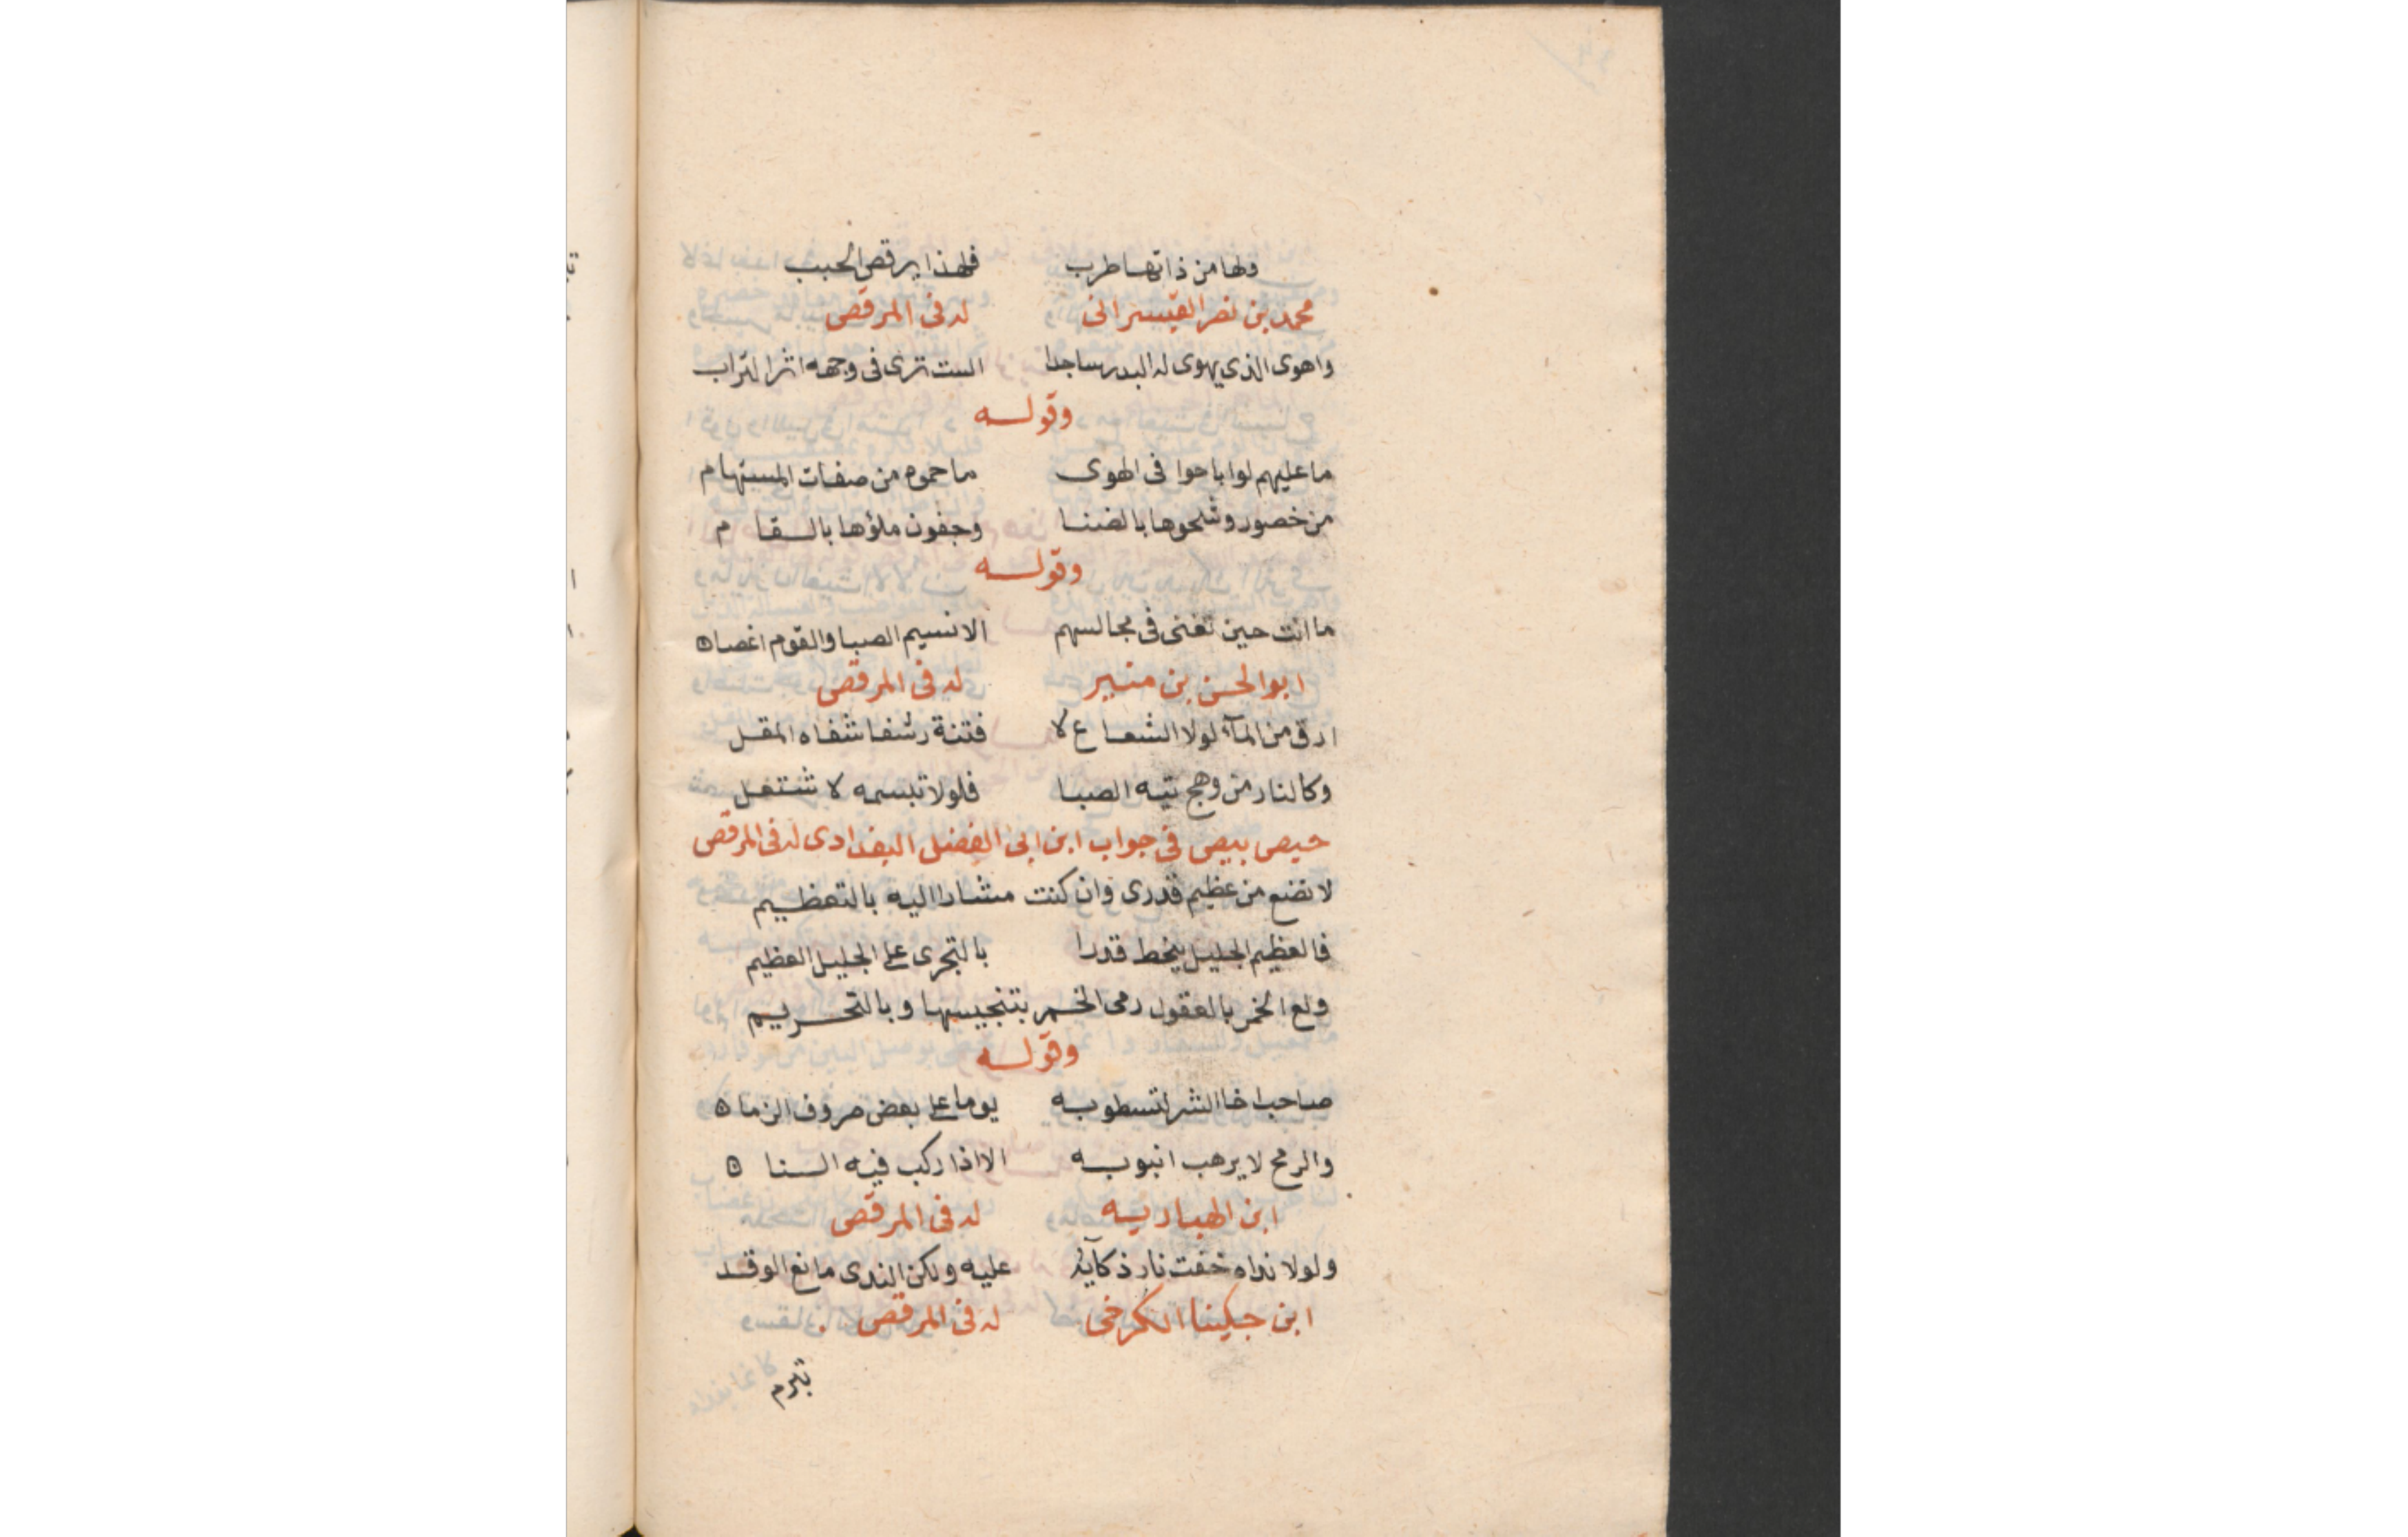 ولها من ذاتها طرب فلهذا يرقص الحبب
محمد بن نصر القيسرانى له فى المرقص
واهوى الذى يهوى له البدر ساجدا الست ترى فى وجهه اثر التراب
وقوله
ما عليهم لو اباحوا فى الهوى ما حموه من صفات المستهام
من خصور وشحوها بالضنا وجفون ملؤها بالسقام
وقوله
ما انت حين تغنى فى مجالسهم الا نسيم الصبا والقوم اغصان
ابو الحسن بن منير له فى المرقص
ارق من المآء لولا الشعاع لا فتنة رشفا شفاه المقل
وكالنار من وهج تيه الصبا فلولا تبسمه لاشتعل
حيص بيص فى جواب ابن ابى الفضل البغدادى له فى المرقص
لا تضع من عظيم قدرى وان كنت مشارا اليه بالتعظيم
فالعظيم الجليل ينحط قدرا بالتجرى على الجليل العظيم
ولع الخمر بالعقول رمى الخمر بتنجيسها وبالتحريم
وقوله
صاحب اخا الشر لتسطو به يوما على بعض صروف الزمان
والرمح لا يرهب انبوبه الا اذا ركب فيه السنان
ابن الهباريه له فى المرقص
ولولا نداه خفت نار ذكآئه عليه ولكن الندى مانع الوقد
ابن جكينا الكرخى له فى المرقص